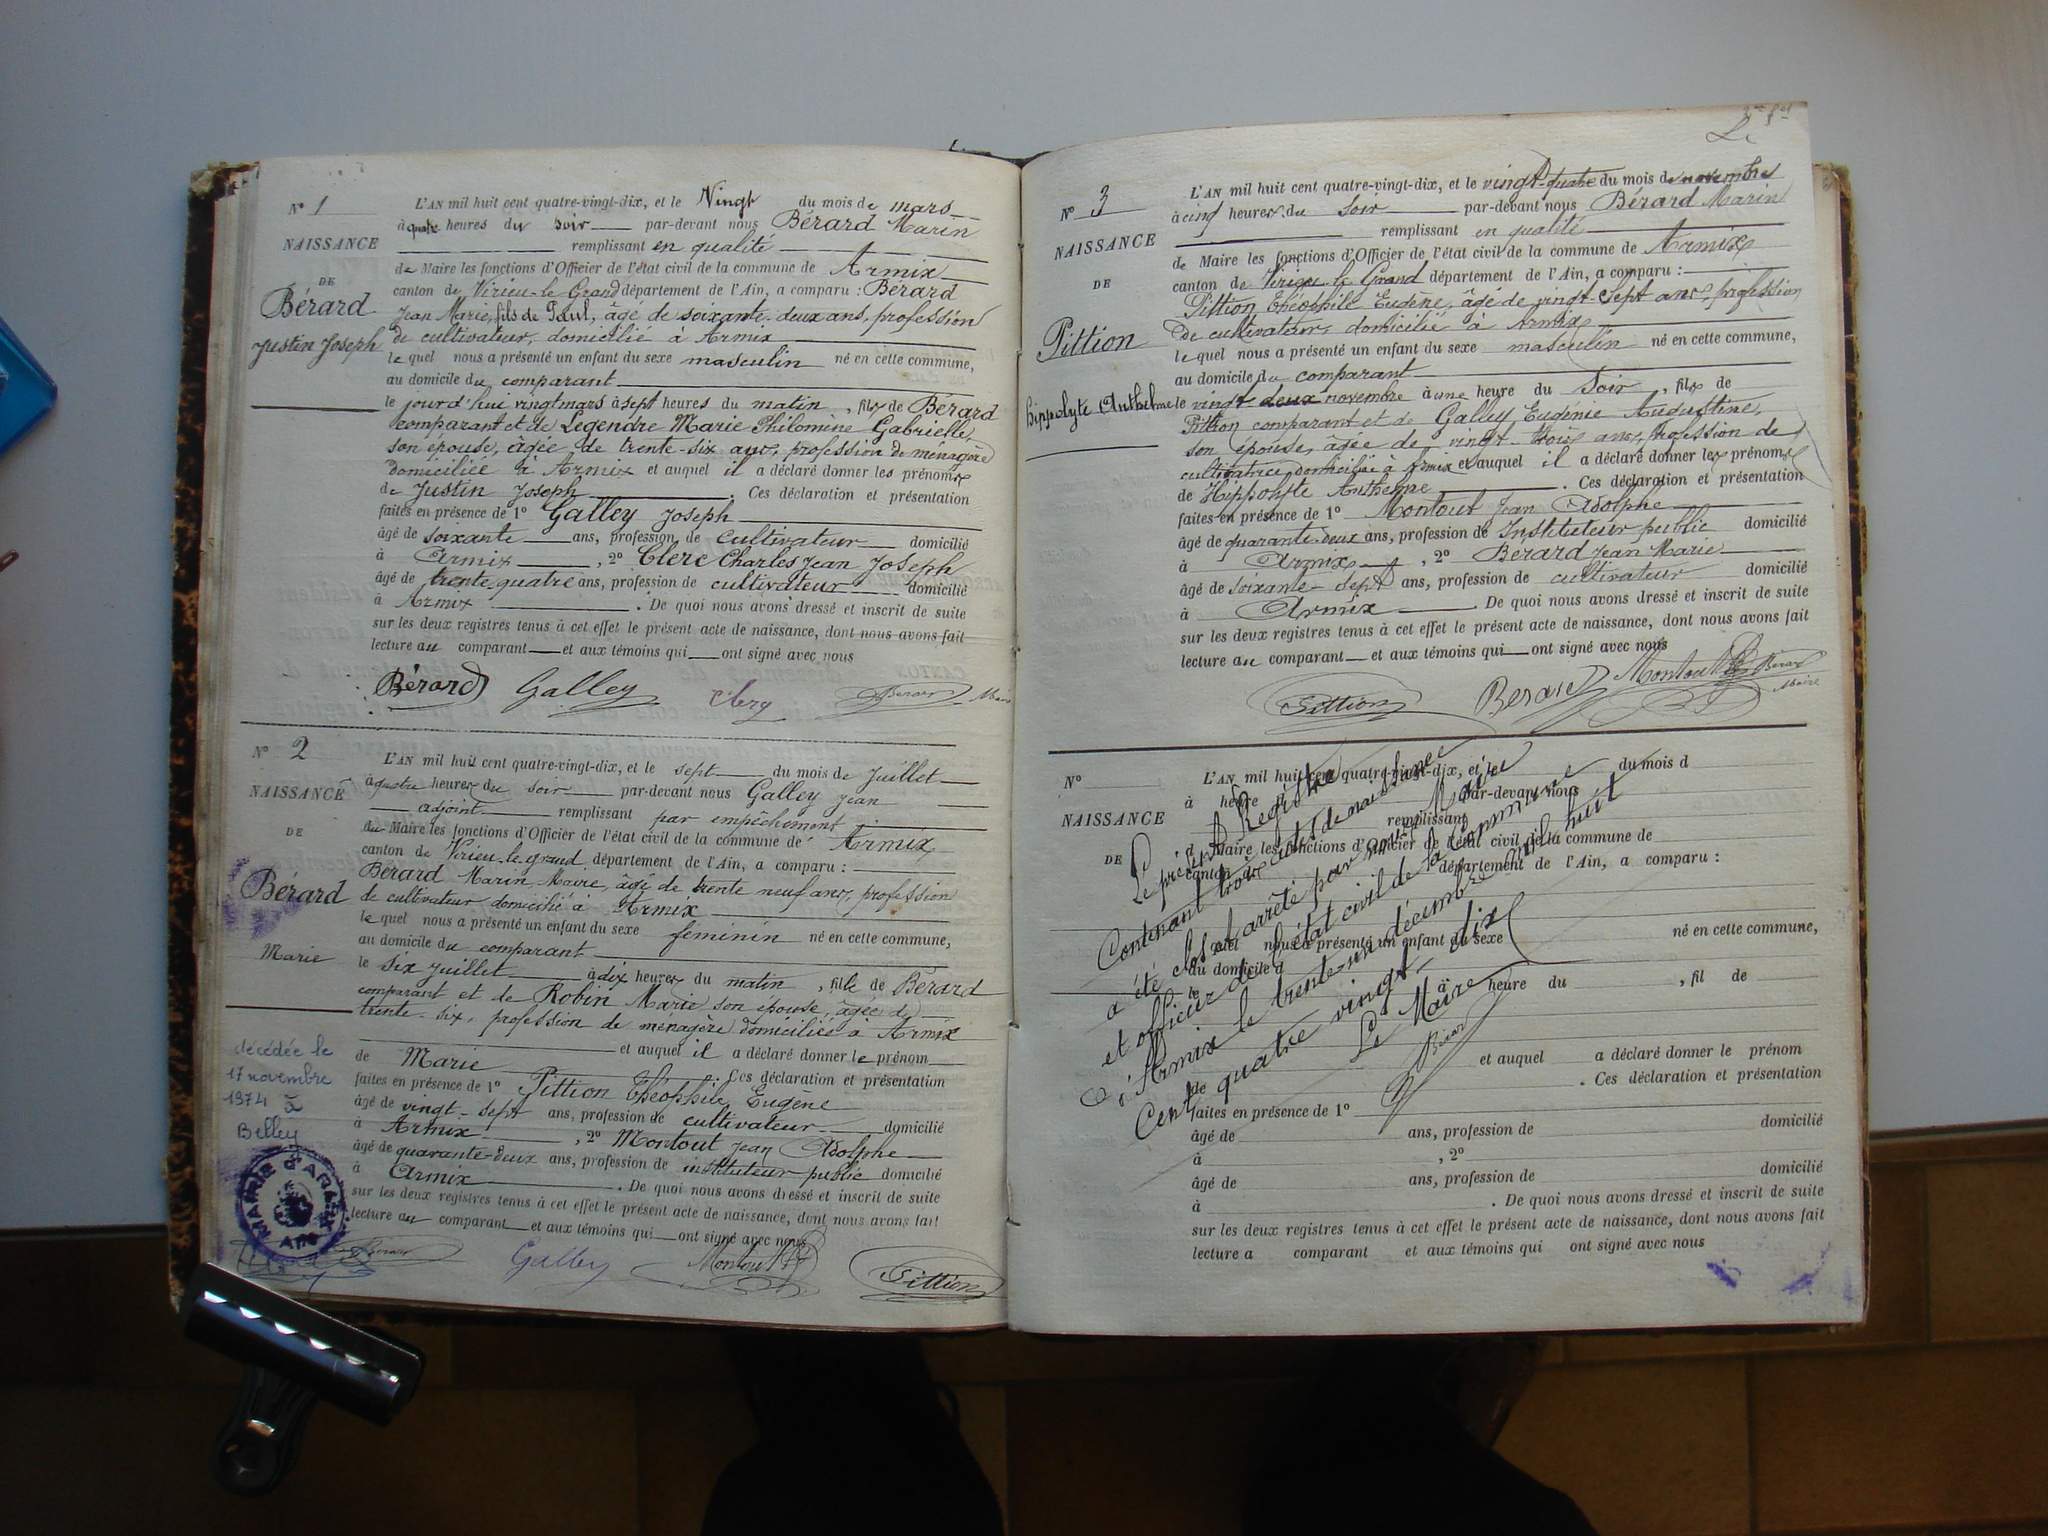 N° 1
NAISSANCE
DE
Bérard
Justin Joseph
L'AN mil huit cent quatre-vingt-dix, et le Vingt du mois de mars
à quatre heures du soir par-devant nous Bérard Marin
remplissant en qualité
de Maire les fonctions d'Officier de l'état civil de la commune de Armix
canton de Virieu-le-Grand département de l'Ain, a comparu : Bérard
Jean Marie, fils de Paul, âgé de soixante-deux ans, profession
de cultivateur, domicilié à Armix
le quel nous a présenté un enfant du sexe masculin né en cette commune,
au domicile du comparant
le jourd'hui vingt mars à sept heures du matin, fils de Bérard
comparant et de Legendre Marie Philomène Gabrielle,
son épouse, âgée de trente-six ans, profession de ménagère
domiciliée à Armix et auquel il a déclaré donner les prénoms
de Justin Joseph. Ces déclaration et présentation
faites en présence de 1° Galley Joseph
âgé de soixante ans, profession de cultivateur domicilié
à Armix, 2° Clerc Charles Jean Joseph
âgé de trente-quatre ans, profession de cultivateur domicilié
à Armix. De quoi nous avons dressé et inscrit de suite
sur les deux registres tenus à cet effet le présent acte de naissance, dont nous avons fait
lecture au comparant et aux témoins qui ont signé avec nous
Bérard Galley Clerc Bérard Maire
N° 2
NAISSANCE
DE
Bérard
Marie
décédée le
17 novembre
1974 à
Belley
MAIRIE D'ARMIX
AIN
L'AN mil huit cent quatre-vingt-dix, et le sept du mois de Juillet
à quatre heures du soir par-devant nous Galley Jean
adjoint remplissant par empêchement
du Maire les fonctions d'Officier de l'état civil de la commune de Armix
canton de Virieu-le-grand département de l'Ain, a comparu :
Bérard Marin, Maire, âgé de trente neuf ans, profession
de cultivateur domicilié à Armix
le quel nous a présenté un enfant du sexe feminin né en cette commune,
au domicile du comparant
le Six Juillet à dix heures du matin, fille de Bérard
comparant et de Robin Marie son épouse, âgée de
trente-six, profession de ménagère domiciliée à Armix
et auquel il a déclaré donner le prénom
de Marie. Ces déclaration et présentation
faites en présence de 1° Pittion Théophile Eugène
âgé de vingt-sept ans, profession de cultivateur domicilié
à Armix, 2° Montout Jean Adolphe
âgé de quarante-deux ans, profession de instituteur public domicilié
à Armix. De quoi nous avons dressé et inscrit de suite
sur les deux registres tenus à cet effet le présent acte de naissance, dont nous avons fait
lecture au comparant et aux témoins qui ont signé avec nous
Bérard Galley Montout Pittion
N° 3
NAISSANCE
DE
Pittion
Hippolyte Anthelme
L'AN mil huit cent quatre-vingt-dix, et le vingt-quatre du mois de novembre
à cinq heures du Soir par-devant nous Bérard Marin
remplissant en qualité
de Maire les fonctions d'Officier de l'état civil de la commune de Armix
canton de Virieu-le-Grand département de l'Ain, a comparu :
Pittion Théophile Eugène, âgé de vingt-sept ans, profession
de cultivateur, domicilié à Armix
le quel nous a présenté un enfant du sexe masculin né en cette commune,
au domicile du comparant
le vingt-deux novembre à une heure du Soir, fils de
Pittion comparant et de Galley Eugénie Augustine,
son épouse, âgée de vingt-trois ans, profession de
cultivatrice, domiciliée à Armix et auquel il a déclaré donner les prénoms
de Hippolyte Anthelme. Ces déclaration et présentation
faites en présence de 1° Montout Jean Adolphe
âgé de quarante-deux ans, profession de Instituteur public domicilié
à Armix, 2° Bérard Jean Marie
âgé de soixante-sept ans, profession de cultivateur domicilié
à Armix. De quoi nous avons dressé et inscrit de suite
sur les deux registres tenus à cet effet le présent acte de naissance, dont nous avons fait
lecture au comparant et aux témoins qui ont signé avec nous
Pittion Bérard Montout Bérard
Maire
N°
NAISSANCE
DE
L'AN mil huit cent quatre-vingt-dix, et le du mois d
à heure d par-devant nous
remplissant
d Maire les fonctions d'Officier de l'état civil de la commune de
canton d département de l'Ain, a comparu :
le quel nous a présenté un enfant du sexe né en cette commune,
au domicile d
le à heure du , fil de
et auquel a déclaré donner le prénom
de . Ces déclaration et présentation
faites en présence de 1°
âgé de ans, profession de domicilié
à , 2°
âgé de ans, profession de domicilié
à . De quoi nous avons dressé et inscrit de suite
sur les deux registres tenus à cet effet le présent acte de naissance, dont nous avons fait
lecture a comparant et aux témoins qui ont signé avec nous
Le présent Registre
Contenant trois actes de naissance
a été clos et arrêté par nous Maire
et officier de l'état civil de la commune
d'Armix le trente-un décembre mil huit
Cent quatre vingt-dix
Le Maire
Bérard